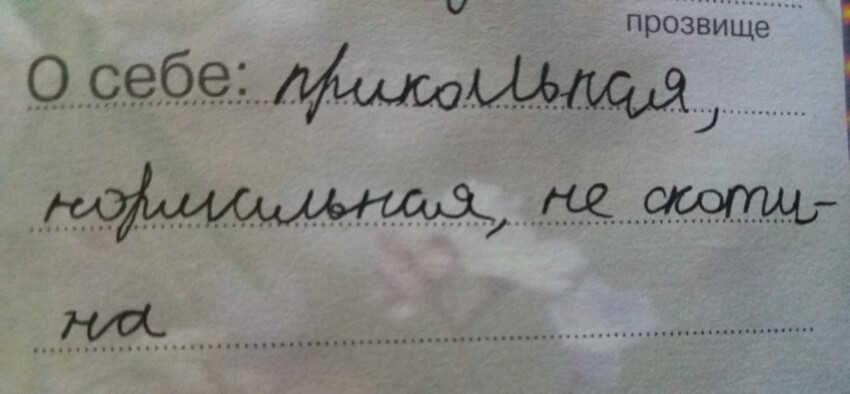 прозвище
О себе: прикольная,
нормальная, не скоти-
на